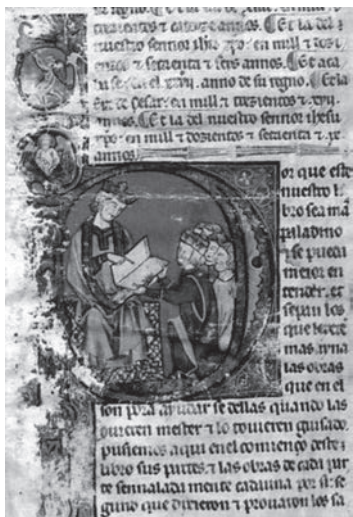 trezientos e catorze annos. Et la del
nuestro sennor ihu xpo. en mill e dozi
entos e setaenta e seys annos. Et aca
bose en el anno de su regno. Et la
Era de Cesar. en mill e trezientos e
annos. Et la del nuestro sennor ihesu
xpo. en mill e dozientos e setaenta e
annos
or que este
nuestro li
bro sea mas
paladino
e se pueda
meior en
tender. et
sepan los
que leyere
mas ayna
las obras
que en el
son pora ayudar se dellas quando las
quieren mester e lo touieren guisado.
pusiemos aqui en el comienço deste
libro sus partes. e las obras de cada par
te sennalada mente cadauna por si. se
guno que dixieron e prouaron los sa